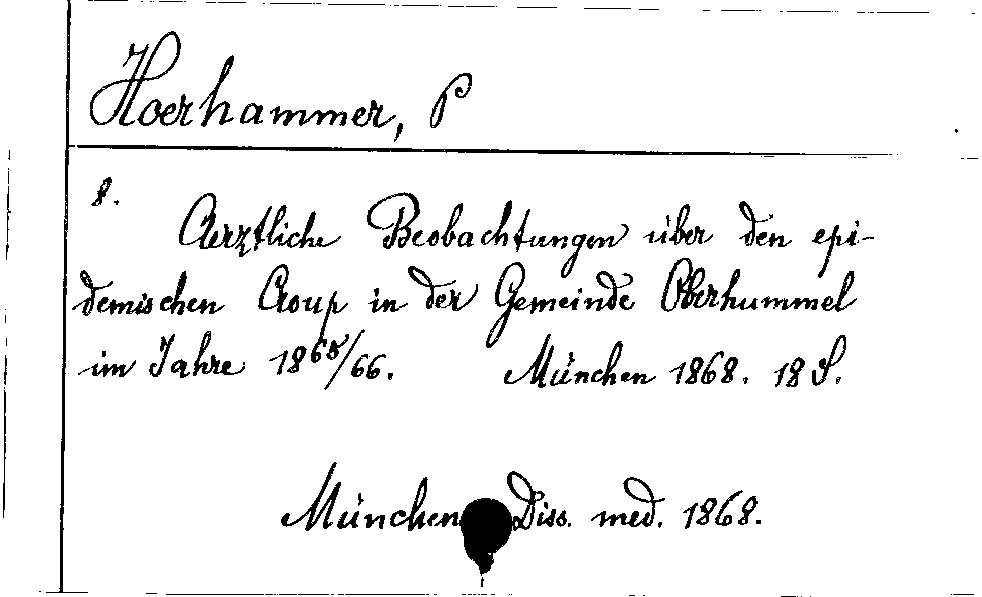 Hoerhammer, P
8.
Aerztliche Beobachtungen über den epi-
demischen Croup in der Gemeinde Oberhummel
im Jahre 1865/66. München 1868. 18 S.
München Diss. med. 1868.